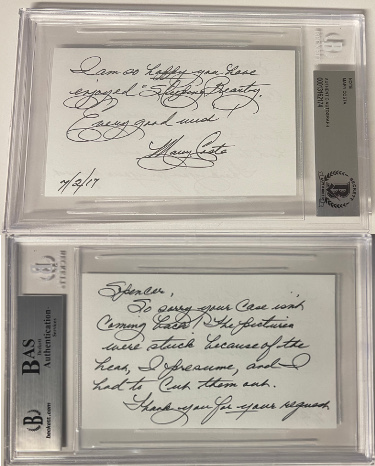 I am so happy you have
enjoyed "Sleeping Beauty".
Every good wish!
Mary Costa
7/2/17
BECKETT
B
Spencer,
So sorry your case isn't
coming back! The pictures
were stuck because of the
heat, I presume, and I
had to cut them out.
Thank you for your request
BAS
Beckett
Authentication
Services
beckett.com
B